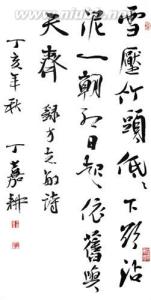 雪壓竹頭低〻下欲沾
泥一朝紅日起依舊與
天齊 錄方志敏詩
丁亥年秋 丁嘉耕